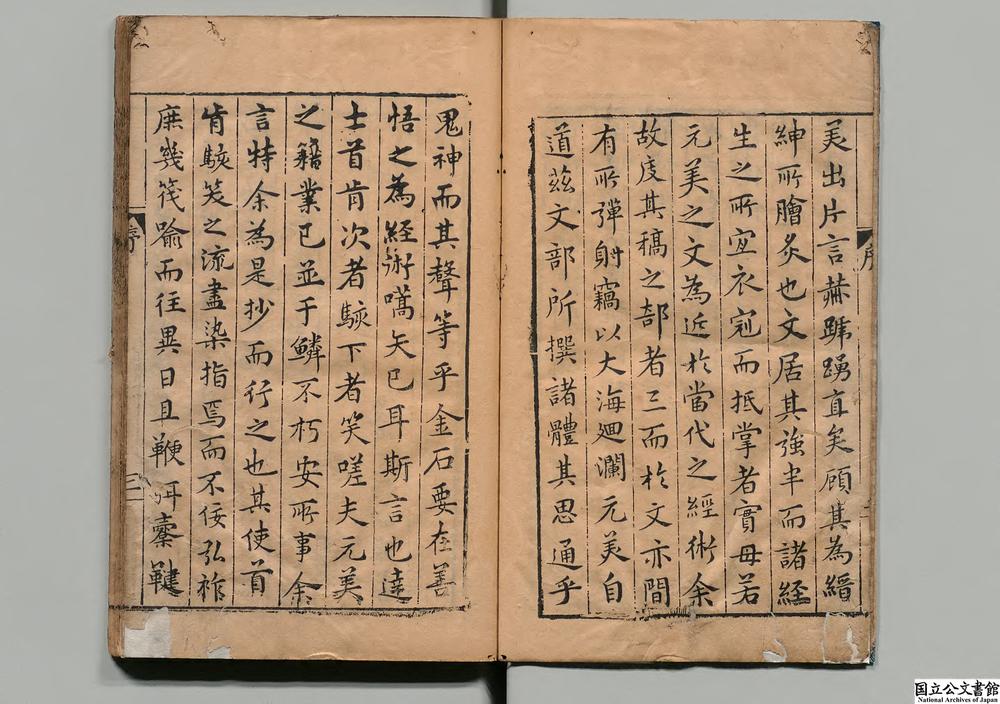 美出片言赫蹏踴直矣顧其為縉
紳所膾炙也文居其強半而諸經
生之所宜衣冠而抵掌者實毋若
元美之文為近於當代之經術余
故庋其稿之部者三而於文亦間
有所彈射竊以大海廻瀾元美自
道茲文部所撰諸體其思通乎
鬼神而其聲等乎金石要在善
悟之為經術嚆矢已耳斯言也達
士首肯次者駴下者笑嗟夫元美
之籍業已並于鱗不朽安所事余
言特余為是抄而行之也其使首
肯駴笑之流盡染指焉而不佞弘祚
庶幾筏喻而往異日且鞭弭櫜鞬
序
三
序
国立公文書館
National Archives of Japan